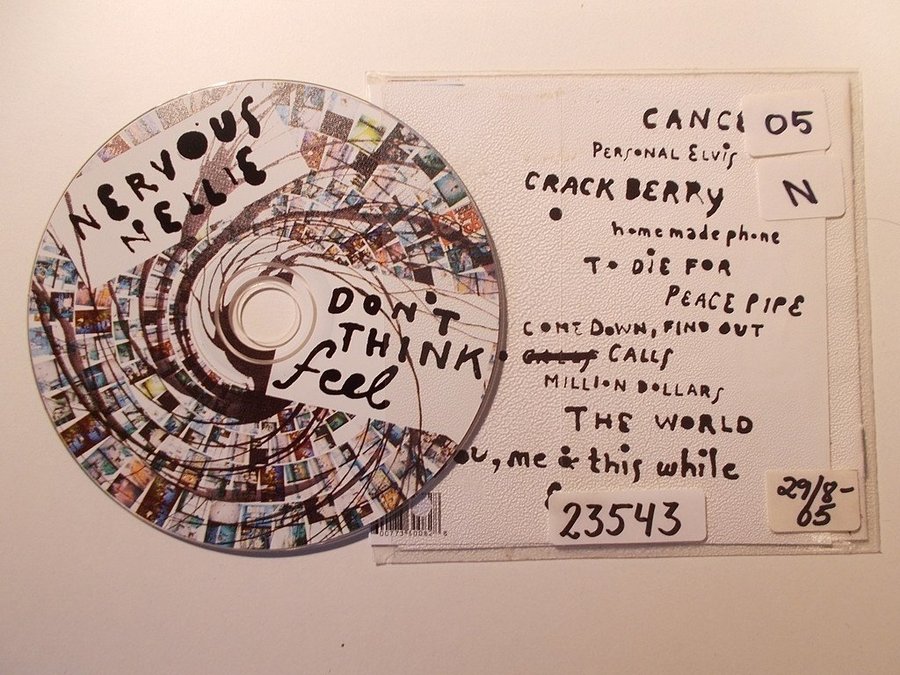 NERVOUS
NELLIE
DON'T
THINK
feel
05
PERSONAL ELVIS
N
CRACKBERRY
homemadephone
TO DIE FOR
PEACE PIPE
COME DOWN, FIND OUT
CALLS
MILLION DOLLARS
THE WORLD
ou, me & this while
23543
29/8-
05